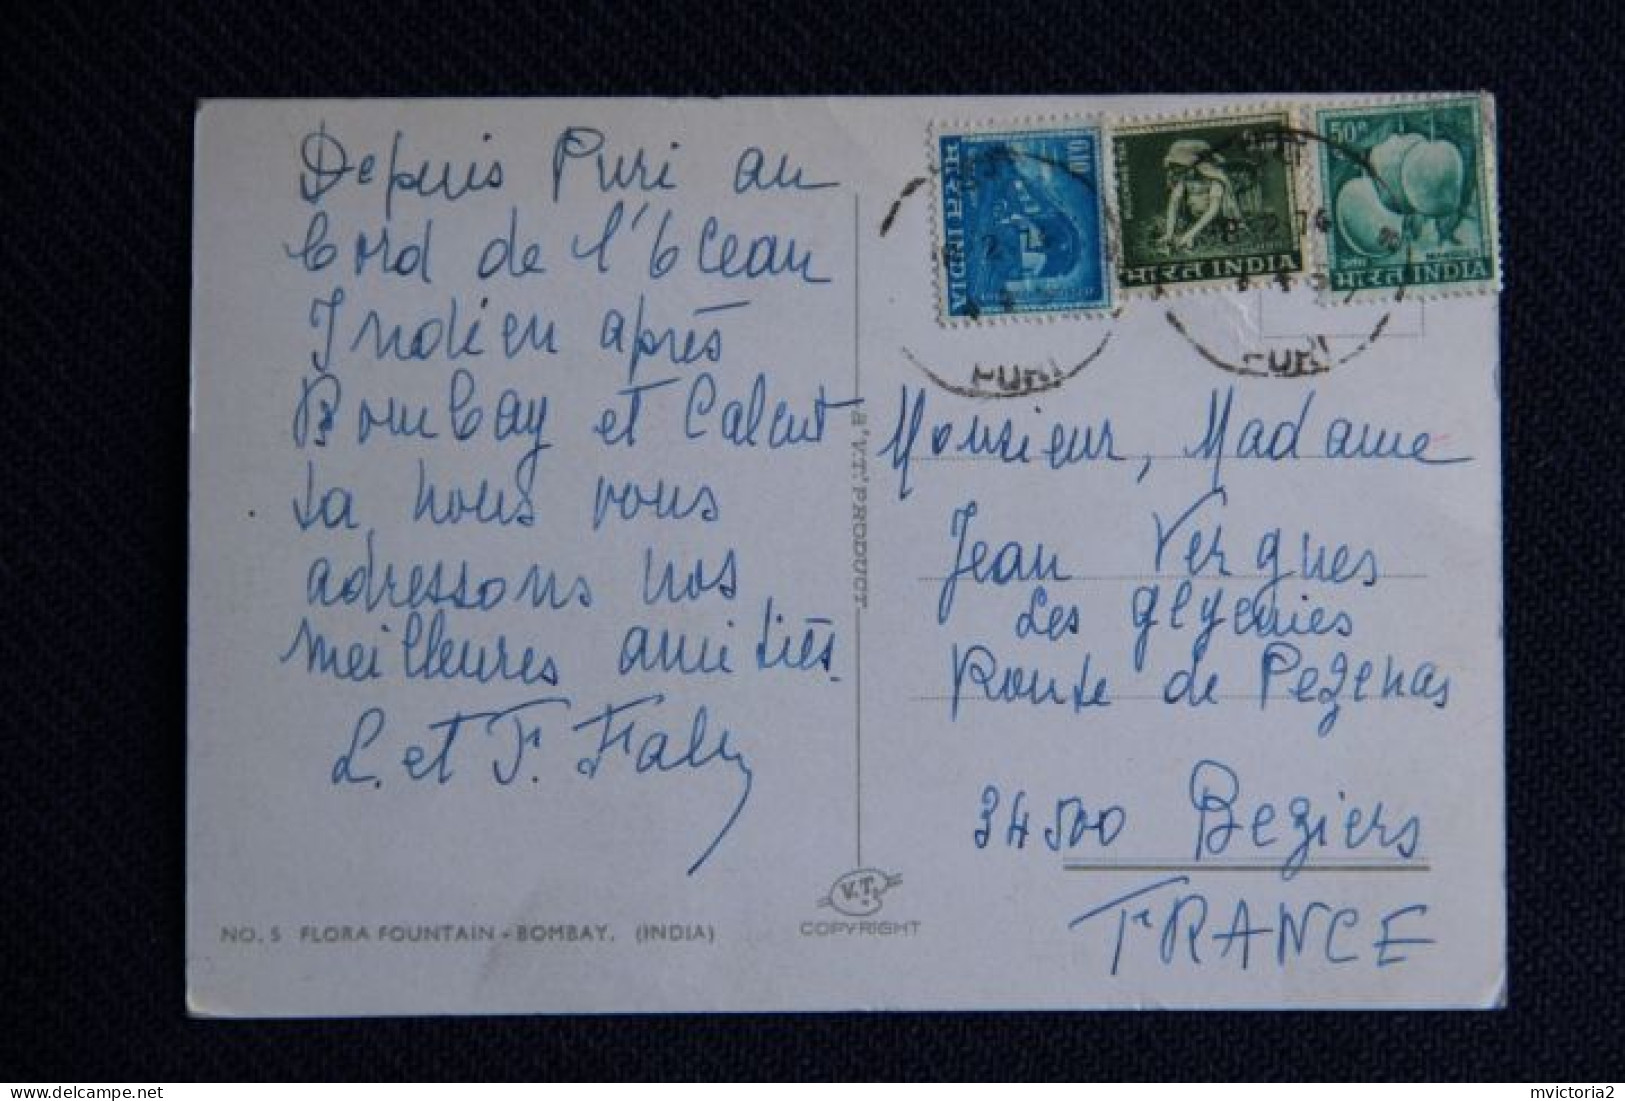 Depuis Puri au
bord de l'Ocean
Indien après
Bombay et Calcut
ta, nous vous
adressons nos
meilleures amitiés.
L. et F. Fabry
NO. 5 FLORA FOUNTAIN - BOMBAY. (INDIA)
A "V.T." PRODUCT.
V.T.
COPYRIGHT
भारत INDIA
50P
भारत INDIA
PURI
8-2-76
PURI
Monsieur, Madame
Jean Vergnes
Les glycines
Route de Pezenas
34500 Beziers
FRANCE
mvictoria2